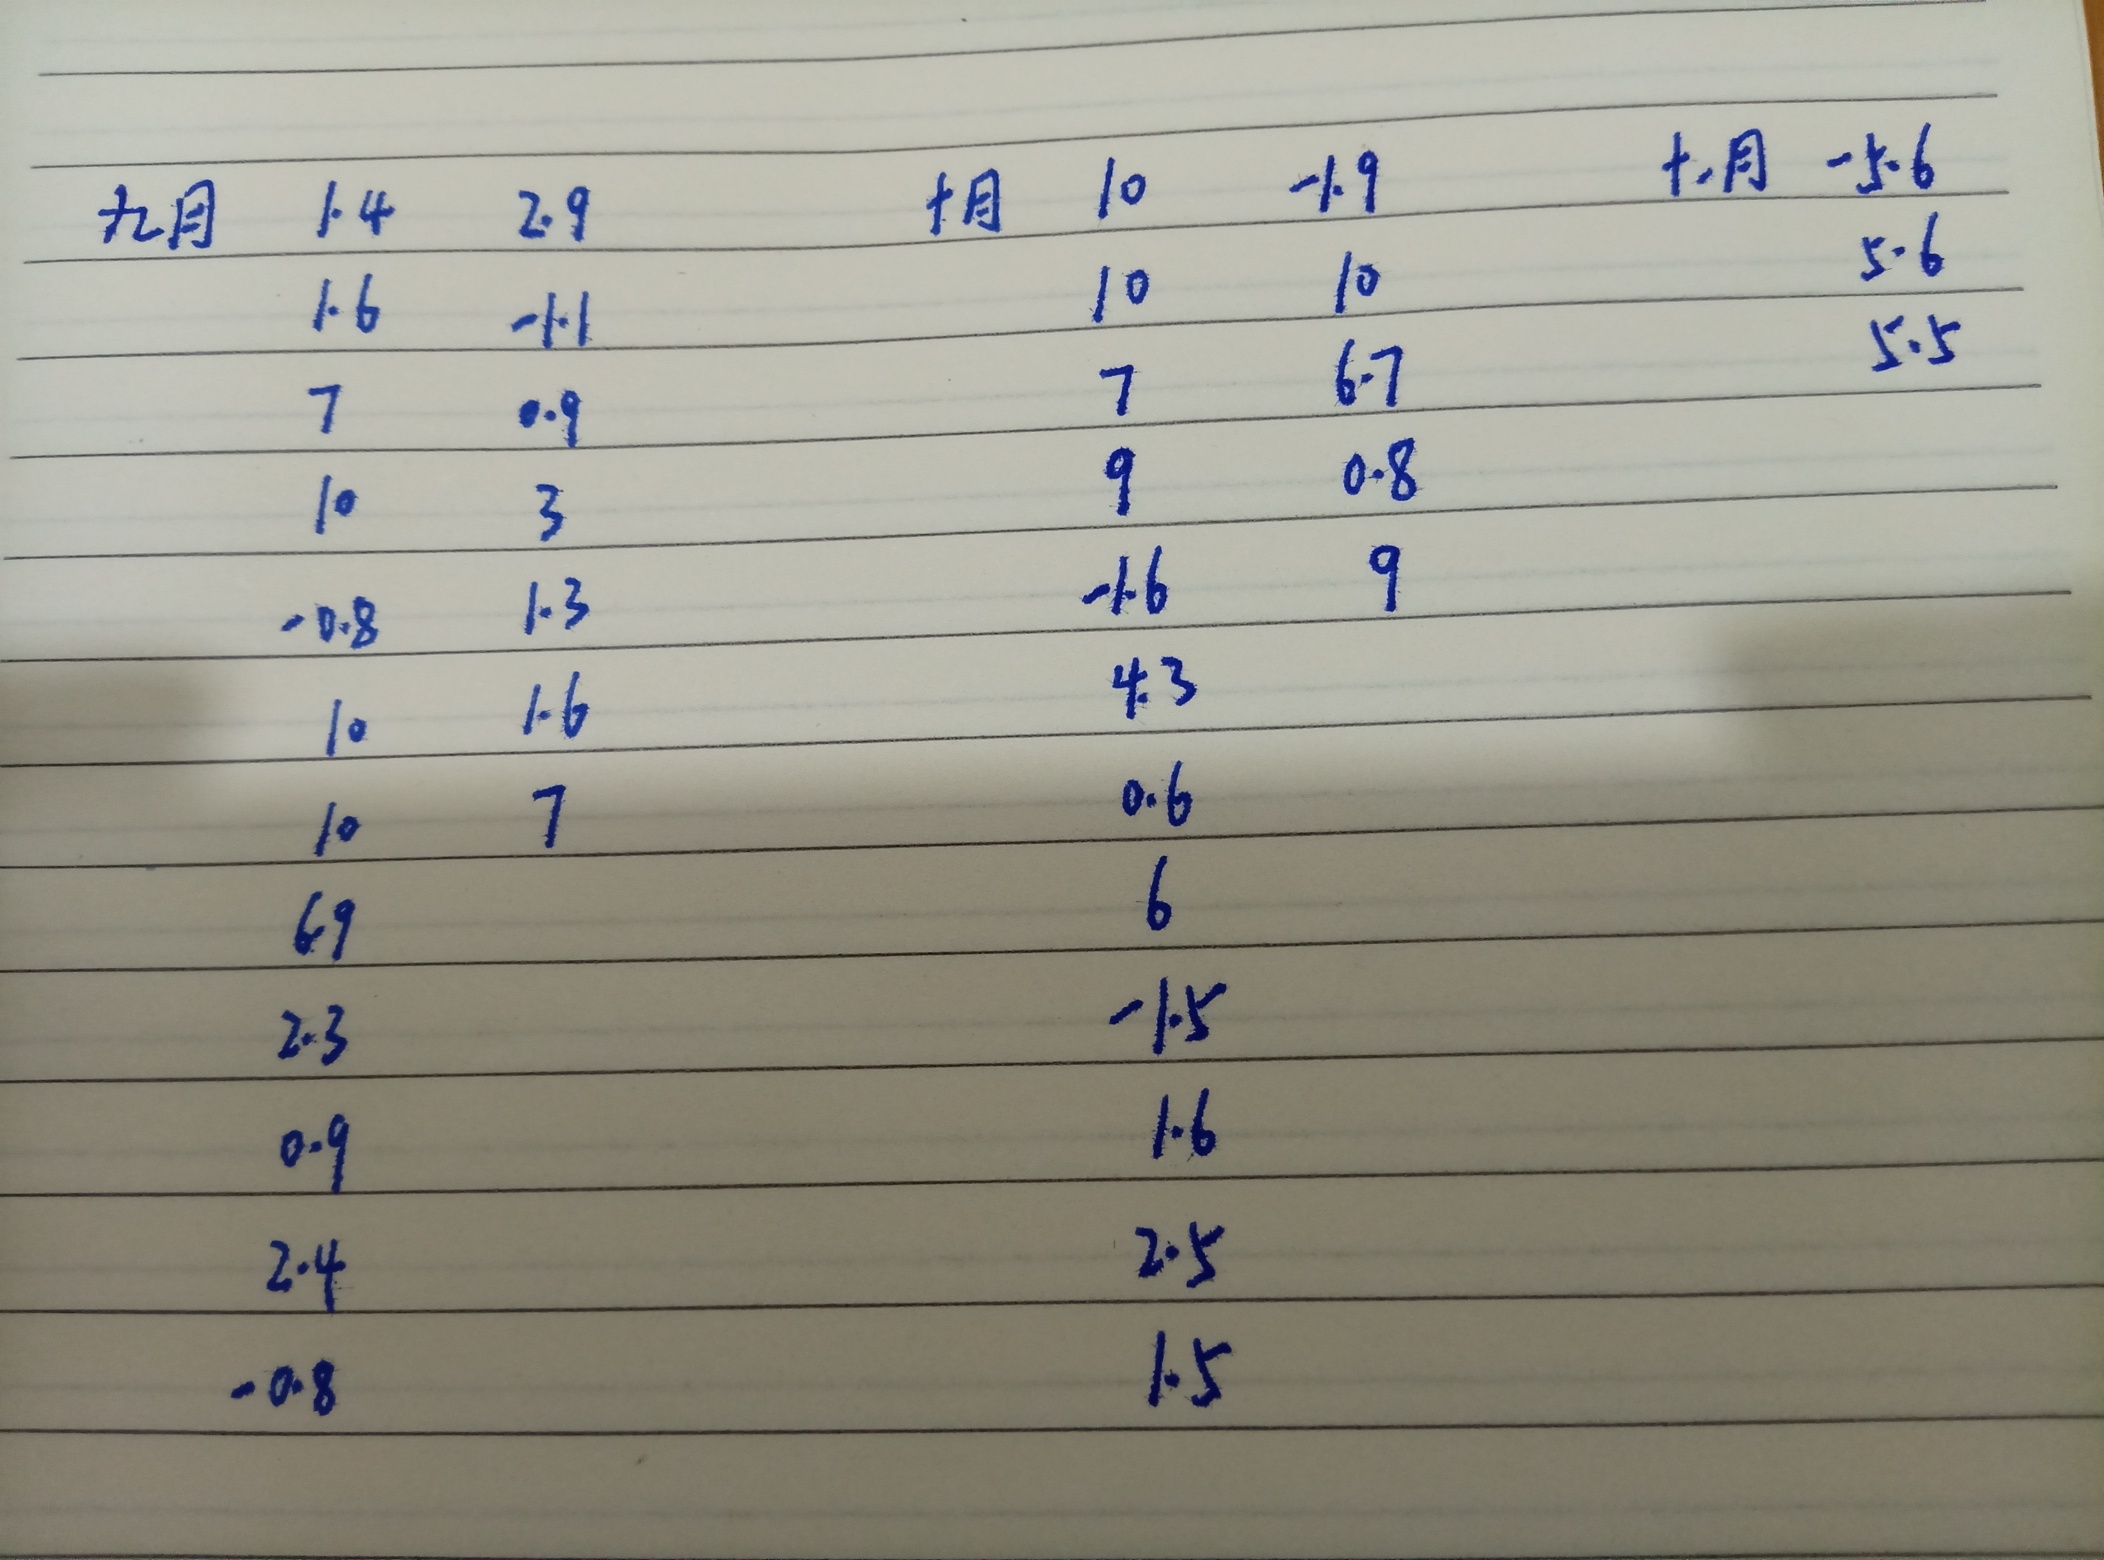 九月 1.4 2.9 十月 10 -1.9 十一月 -5.6
1.6 -1.1 10 10 5.6
7 0.9 7 6.7 5.5
10 3 9 0.8
-0.8 1.3 -1.6 9
10 1.6 4.3
10 7 0.6
6.9 6
2.3 -1.5
0.9 1.6
2.4 2.5
-0.8 1.5